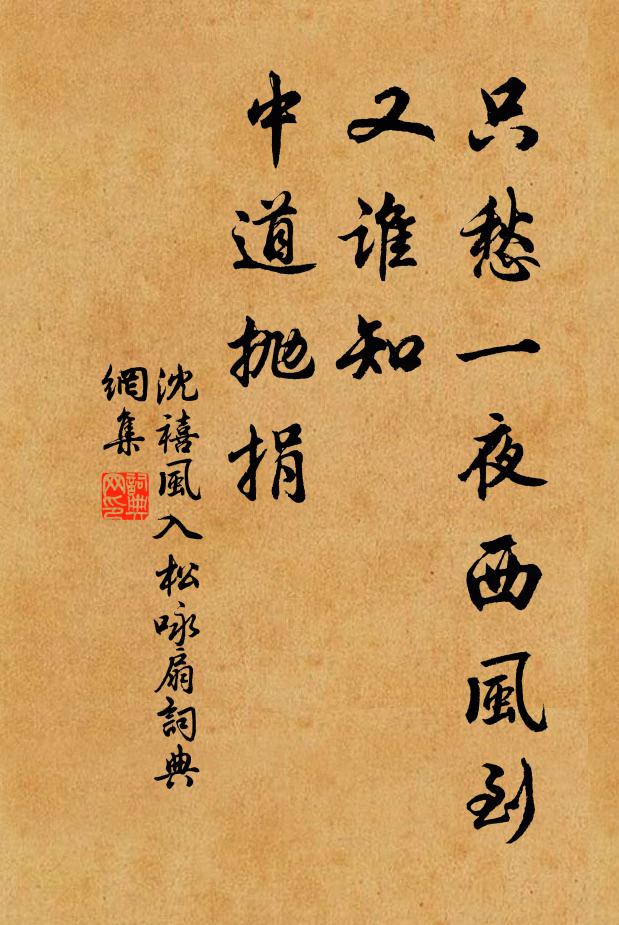 只愁一夜西風到
又誰知
中道抛捐
沈禧風入松咏扇詞典
網集
詞典
网印